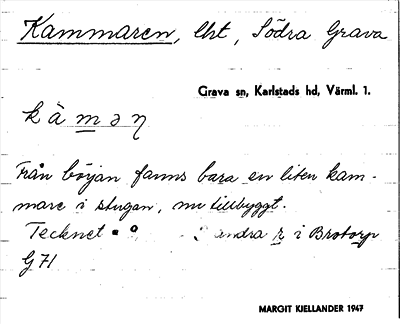 Kammaren, lht, Södra Grava
Grava sn, Karlstads hd, Värml. 1.
kàmaƞ
Från början fanns bara en liten kam-
mare i stugan, nu tillbyggt.
Tecknet ▪ o andra r i Brotorp
G 71
MARGIT KJELLANDER 1947